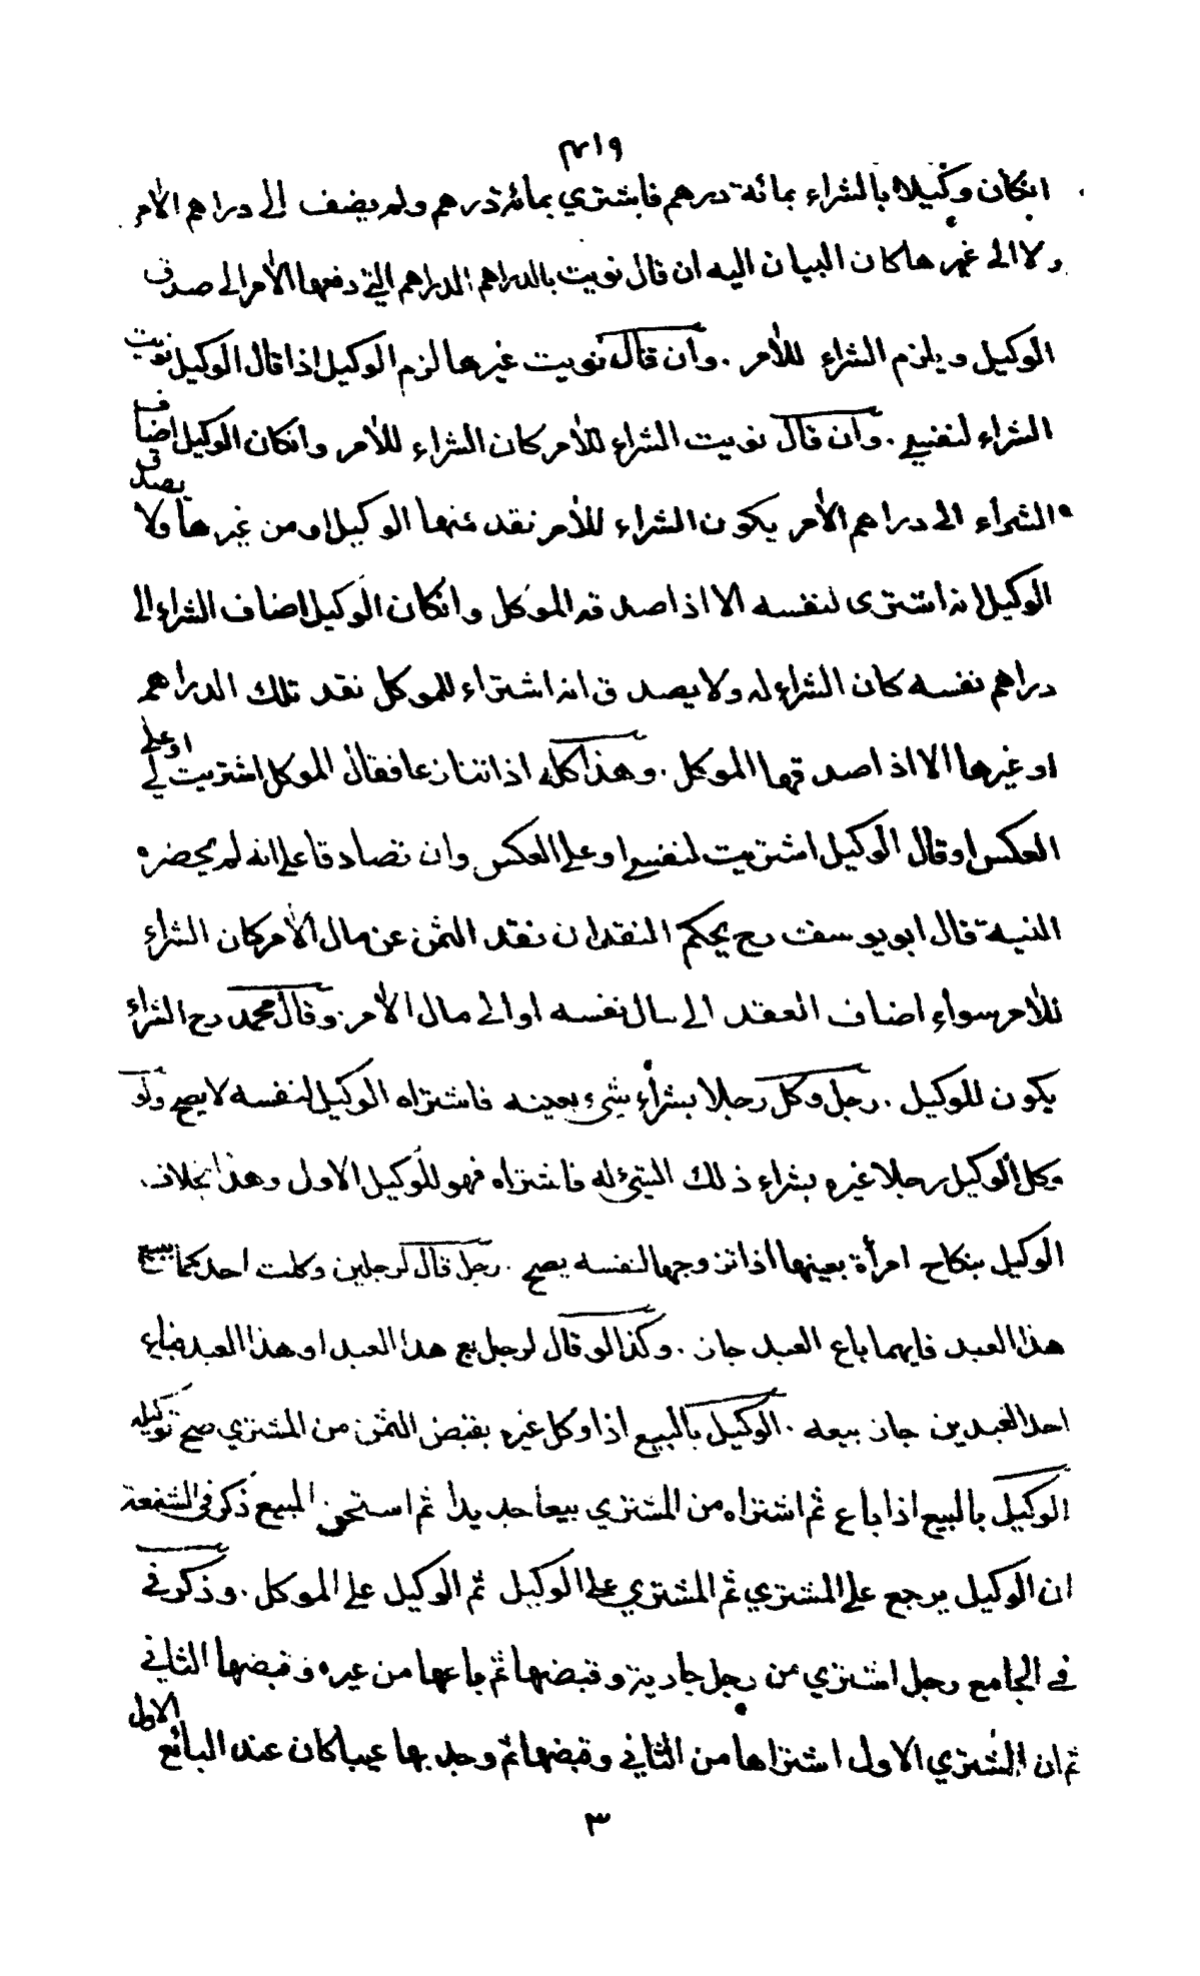 ٣١٩
انكان وكيلا بالشراء بمائة درهم فاشتري بمائة درهم ولم يضف الى دراهم الآمر
ولا الى غيرها كان البيان اليه ان قال نويت بالدراهم الدراهم التي دفعها الآمر الى صدق
الوكيل ويلزم الشراء للآمر . وان قال نويت غيرها لزم الوكيل اذا قال الوكيل نويت
الشراء لنفسي . وان قال نويت الشراء للآمر كان الشراء للآمر وانكان الوكيل اضاف
الشراء الى دراهم الآمر يكون الشراء للآمر نقد منها الوكيل او من غيرها ولا يصدق
الوكيل انه اشترى لنفسه الا اذا صدقه الموكل وانكان الوكيل اضاف الشراء الى
دراهم نفسه كان الشراء له ولا يصدق انه اشتراء للموكل نقد تلك الدراهم
او غيرها الا اذا صدقها الموكل . وهذا كله اذا تنازعا فقال الموكل اشتريت لي او على
العكس او قال الوكيل اشتريت لنفسي او على العكس وان تصادقا على انه لم يحضره
النية قال ابو يوسف رح يحكم النقد ان نقد الثمن عن مال الآمر كان الشراء
للآمر سواء اضاف العقد الى مال نفسه او الى مال الآمر . وقال محمد رح الشراء
يكون للوكيل . رجل وكل رجلا بشراء شيء بعينه فاشتراه الوكيل لنفسه لا يصح ولو
وكل الوكيل رجلا غيره بشراء ذلك الشيء له فاشتراه فهو للوكيل الاول وهذا بخلاف
الوكيل بنكاح امرأة بعينها اذا تزوجها لنفسه يصح . رجل قال لرجلين وكلت احدكما ببيع
هذا العبد فايهما باع العبد جاز . وكذا لو قال لرجل بع هذا العبد او هذا العبد فباع
احد العبدين جاز بيعه . الوكيل بالبيع اذا وكل غيره بقبض الثمن من المشتري صح توكيله
الوكيل بالبيع اذا باع ثم اشتراه من المشتري بيعا جديدا ثم استحق المبيع ذكر في الشفعة
ان الوكيل يرجع على المشتري ثم المشتري على الوكيل ثم الوكيل على الموكل . وذكر في
في الجامع رجل اشتري من رجل جارية وقبضها ثم باعها من غيره وقبضها الثاني
ثم ان المشتري الاول اشتراها من الثاني وقبضها ثم وجد بها عيبا كان عند البائع الاول
٣